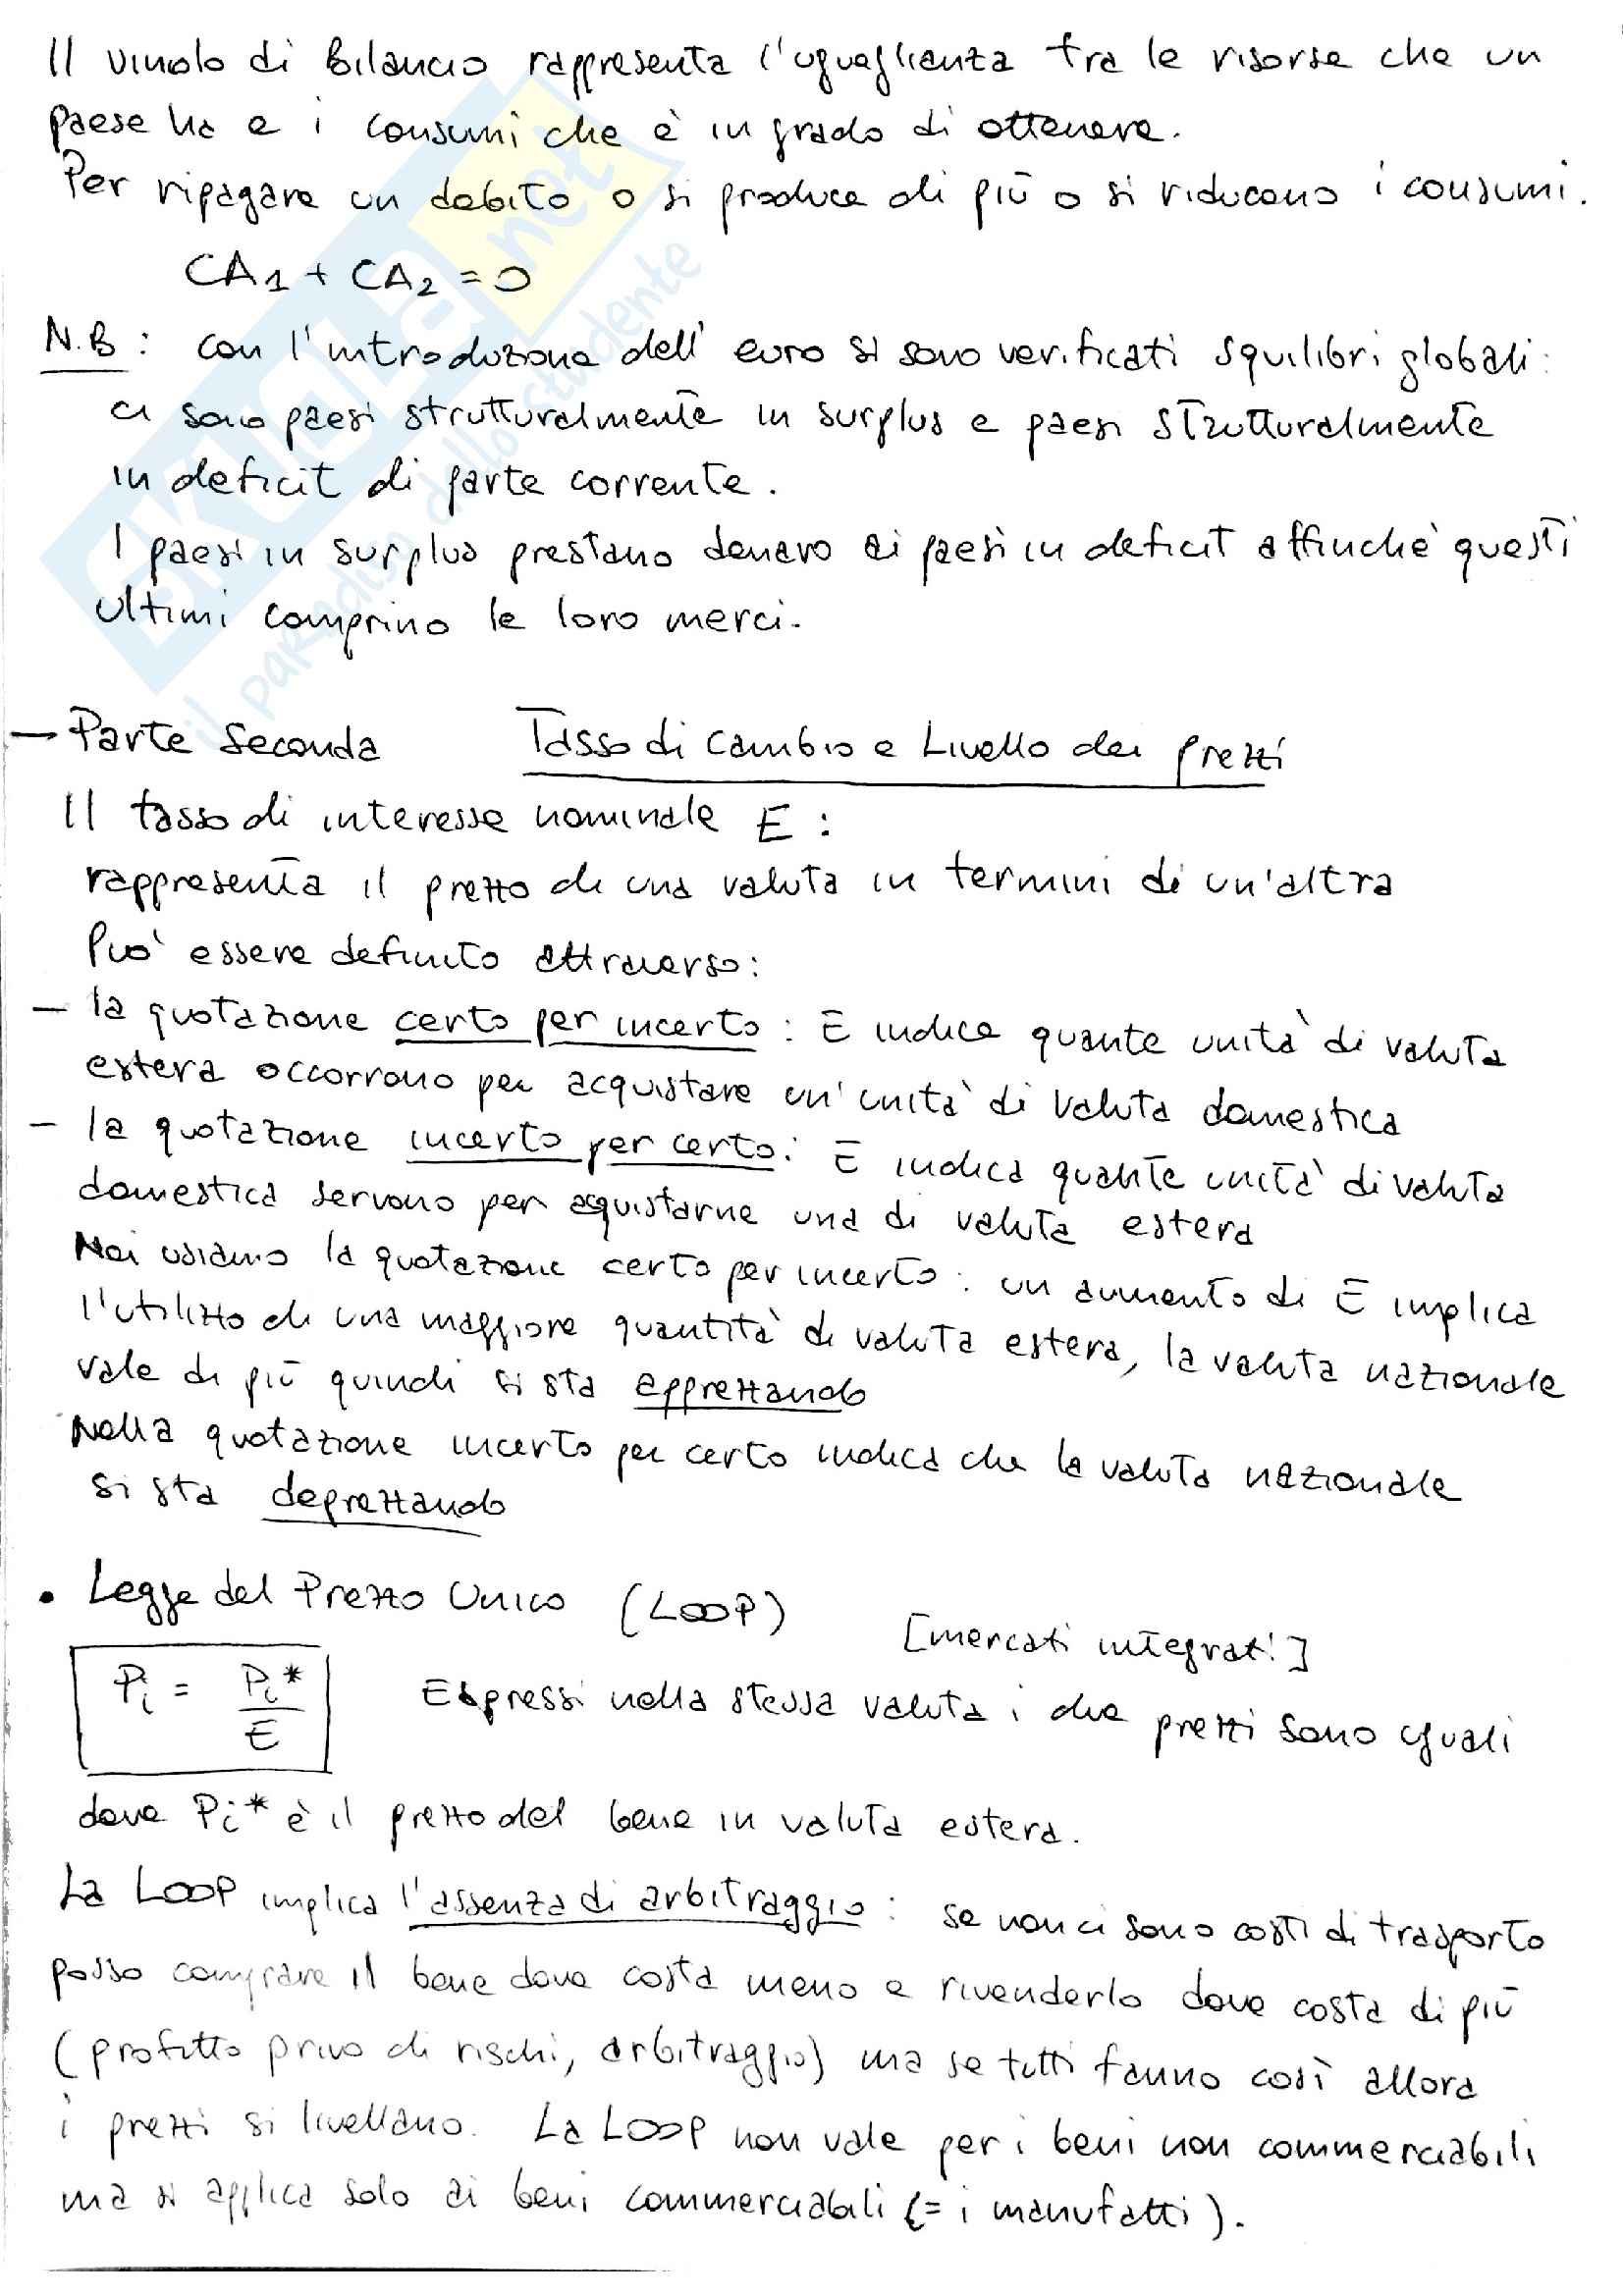 Il vincolo di bilancio rappresenta l'uguaglianza tra le risorse che un
paese ha e i consumi che è in grado di ottenere.
Per ripagare un debito o si produce di più o si riducono i consumi.
CA1 + CA2 = 0
N.B : con l'introduzione dell' euro si sono verificati squilibri globali:
ci sono paesi strutturalmente in surplus e paesi strutturalmente
in deficit di parte corrente.
I paesi in surplus prestano denaro ai paesi in deficit affinchè questi
ultimi comprino le loro merci.
skuola.net
il paradiso dello studente
— Parte Seconda Tasso di cambio e Livello dei prezzi
Il tasso di interesse nominale E :
rappresenta il prezzo di una valuta in termini di un'altra
Può essere definito attraverso:
— la quotazione certo per incerto : E indica quante unità di valuta
estera occorrono per acquistare un'unità di valuta domestica
— la quotazione incerto per certo: E indica quante unità di valuta
domestica servono per acquistarne una di valuta estera
Noi usiamo la quotazione certo per incerto: un aumento di E implica
l'utilizzo di una maggiore quantità di valuta estera, la valuta nazionale
vale di più quindi si sta apprezzando
Nella quotazione incerto per certo indica che la valuta nazionale
si sta deprezzando
• Legge del Prezzo Unico (LOOP) [mercati integrati]
Pi = Pi* / E Espressi nella stessa valuta i due prezzi sono uguali
dove Pi* è il prezzo del bene in valuta estera.
La LOOP implica l'assenza di arbitraggio : se non ci sono costi di trasporto
posso comprare il bene dove costa meno e rivenderlo dove costa di più
(profitto privo di rischi, arbitraggio) ma se tutti fanno così allora
i prezzi si livellano. La LOOP non vale per i beni non commerciabili
ma si applica solo ai beni commerciabili (= i manufatti).